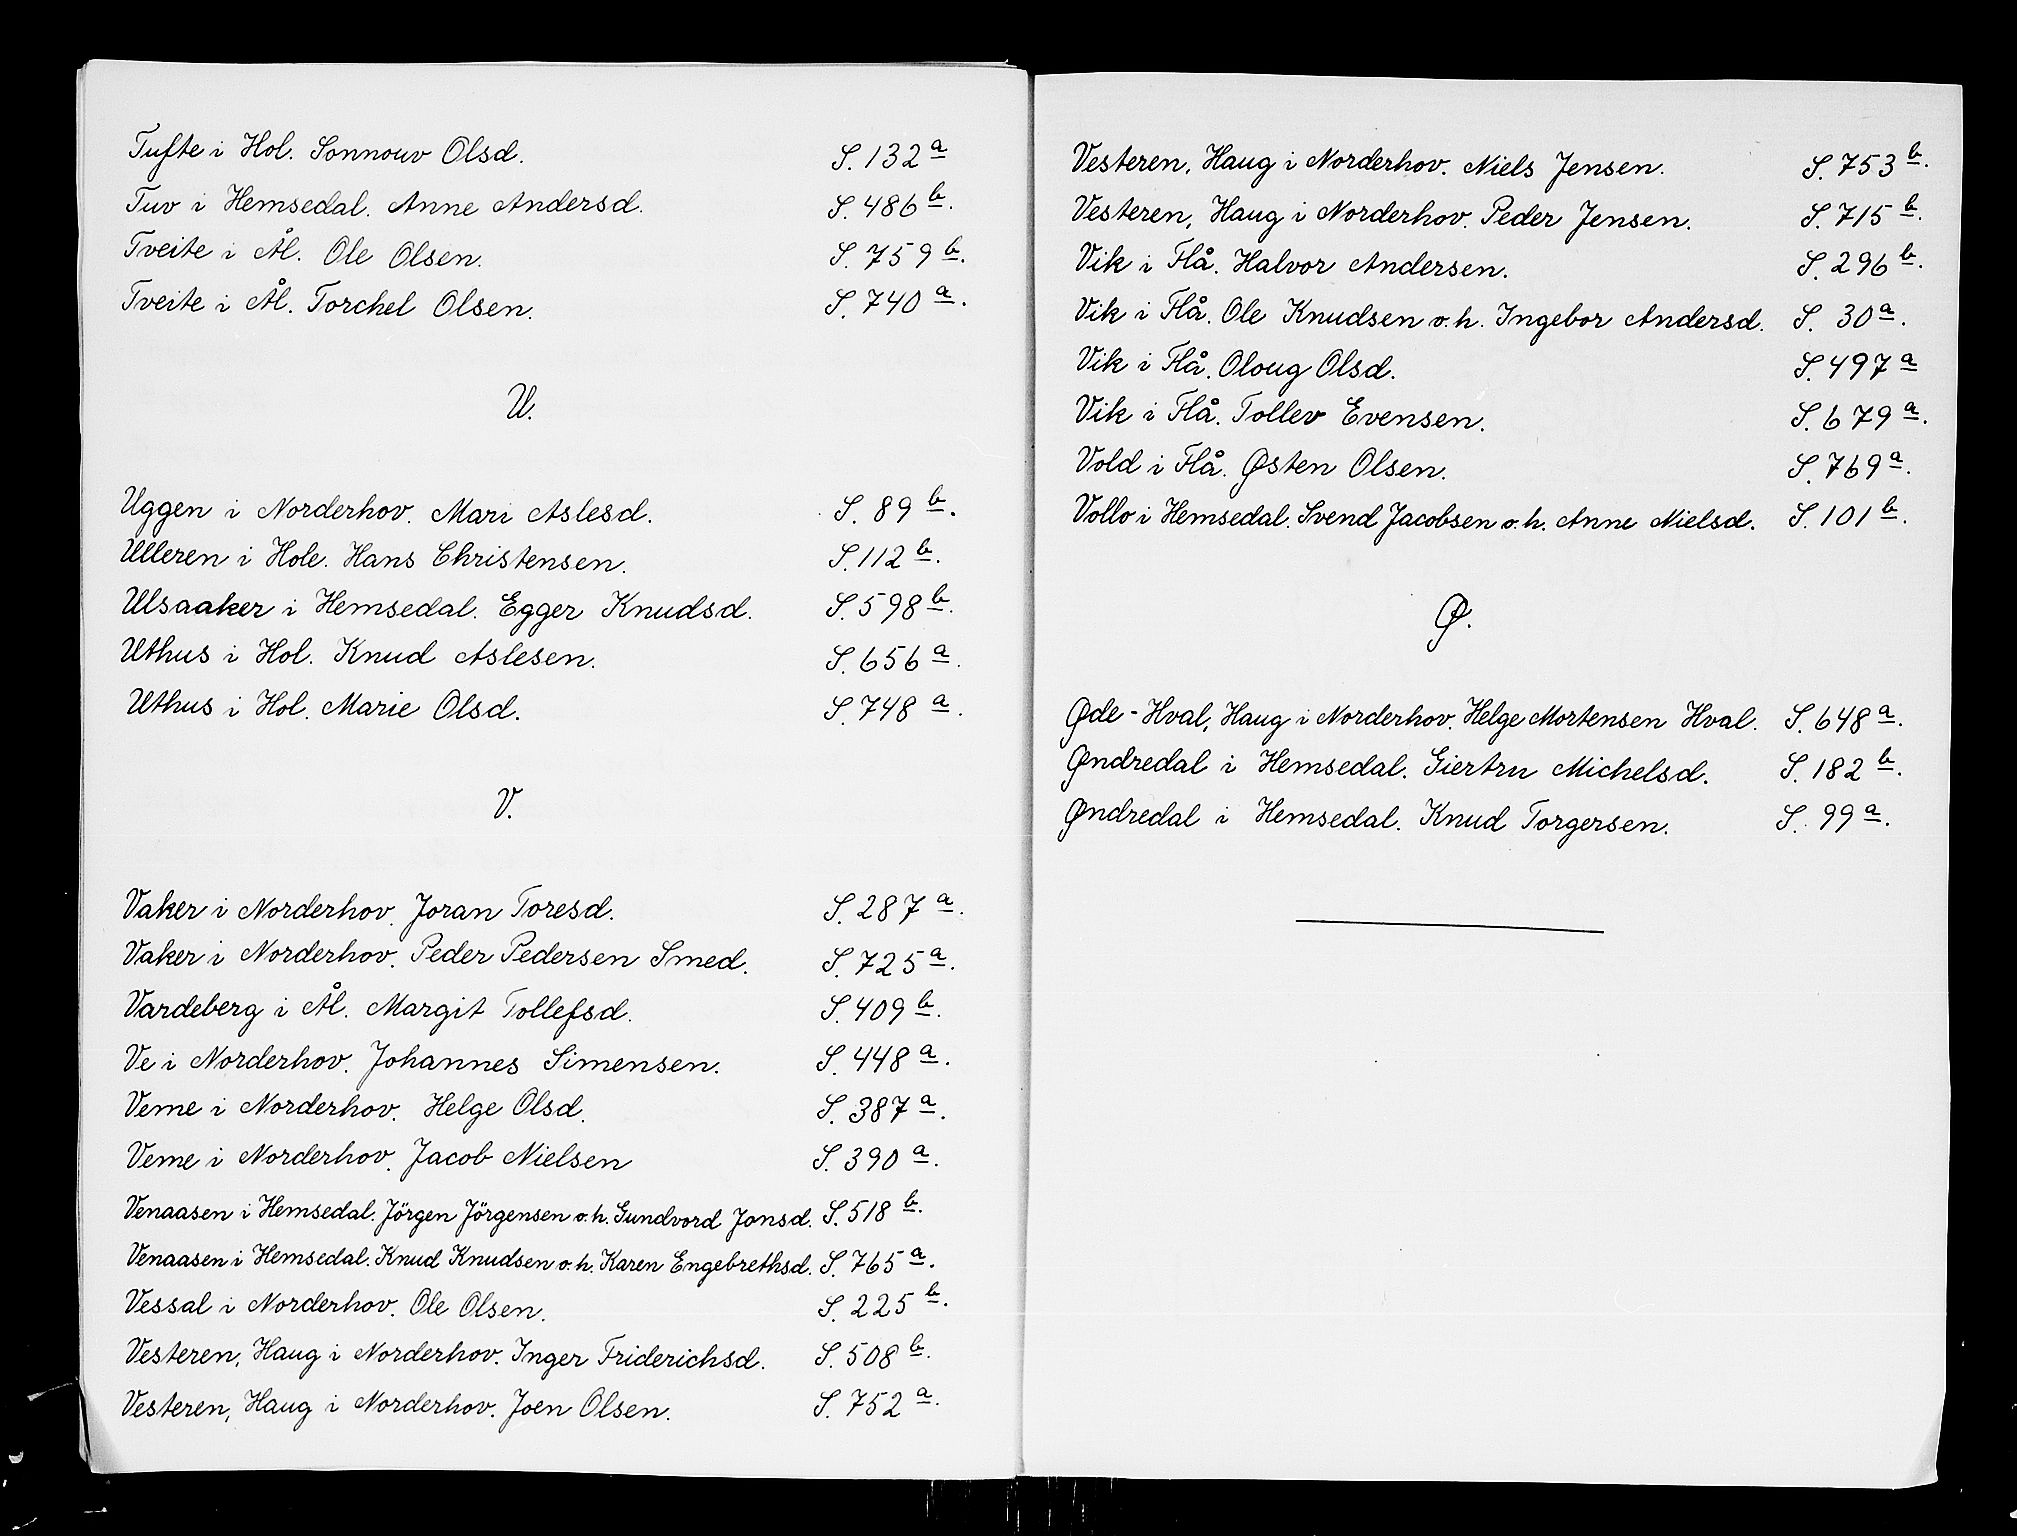 Tufte i Hol. Sonnouv Olsd. S. 132 a
Tuv i Hemsedal. Anne Andersd. S. 486 b.
Tveite i Ål. Ole Olsen. S. 759 b.
Tveite i Ål. Torchel Olsen. S. 740 a.
U.
Uggen i Norderhov. Mari Aslesd. S. 89 b.
Ulleren i Hole. Hans Christensen. S. 112 b.
Ulsaaker i Hemsedal. Egger Knudsd. S. 598 b.
Uthus i Hol. Knud Aslesen. S. 656 a.
Uthus i Hol. Marie Olsd. S. 748 a.
V.
Vaker i Norderhov. Joran Toresd. S. 287 a.
Vaker i Norderhov. Peder Pedersen Smed. S. 725 a.
Vardeberg i Ål. Margit Tollefsd. S. 409 b.
Ve i Norderhov. Johannes Simensen. S. 448 a.
Veme i Norderhov. Helge Olsd. S. 387 a.
Veme i Norderhov. Jacob Nielsen S. 390 a.
Venaasen i Hemsedal. Jörgen Jörgensen o.h. Gundvord Jonsd. S. 518 b.
Venaasen i Hemsedal. Knud Knudsen o.h. Karen Engebrethsd. S. 765 a.
Vessal i Norderhov. Ole Olsen. S. 225 b.
Vesteren, Haug i Norderhov. Inger Friderichsd. S. 508 b.
Vesteren, Haug i Norderhov. Joen Olsen. S. 752 a.
Vesteren, Haug i Norderhov. Niels Jensen. S. 753 b.
Vesteren, Haug i Norderhov. Peder Jensen. S. 715 b.
Vik i Flå. Halvor Andersen. S. 296 b.
Vik i Flå. Ole Knudsen o.h. Ingebor Andersd. S. 30 a.
Vik i Flå. Oloug Olsd. S. 497 a
Vik i Flå. Tollev Evensen. S. 679 a.
Vold i Flå. Østen Olsen. S. 769 a.
Vollo i Hemsedal. Svend Jacobsen o.h. Anne Nielsd. S. 101 b.
Ø.
Øde-Hval, Haug i Norderhov. Helge Mortensen Hval. S. 648 a.
Øndredal i Hemsedal. Giertru Michelsd. S. 182 b.
Øndredal i Hemsedal. Knud Torgersen. S. 99 a.